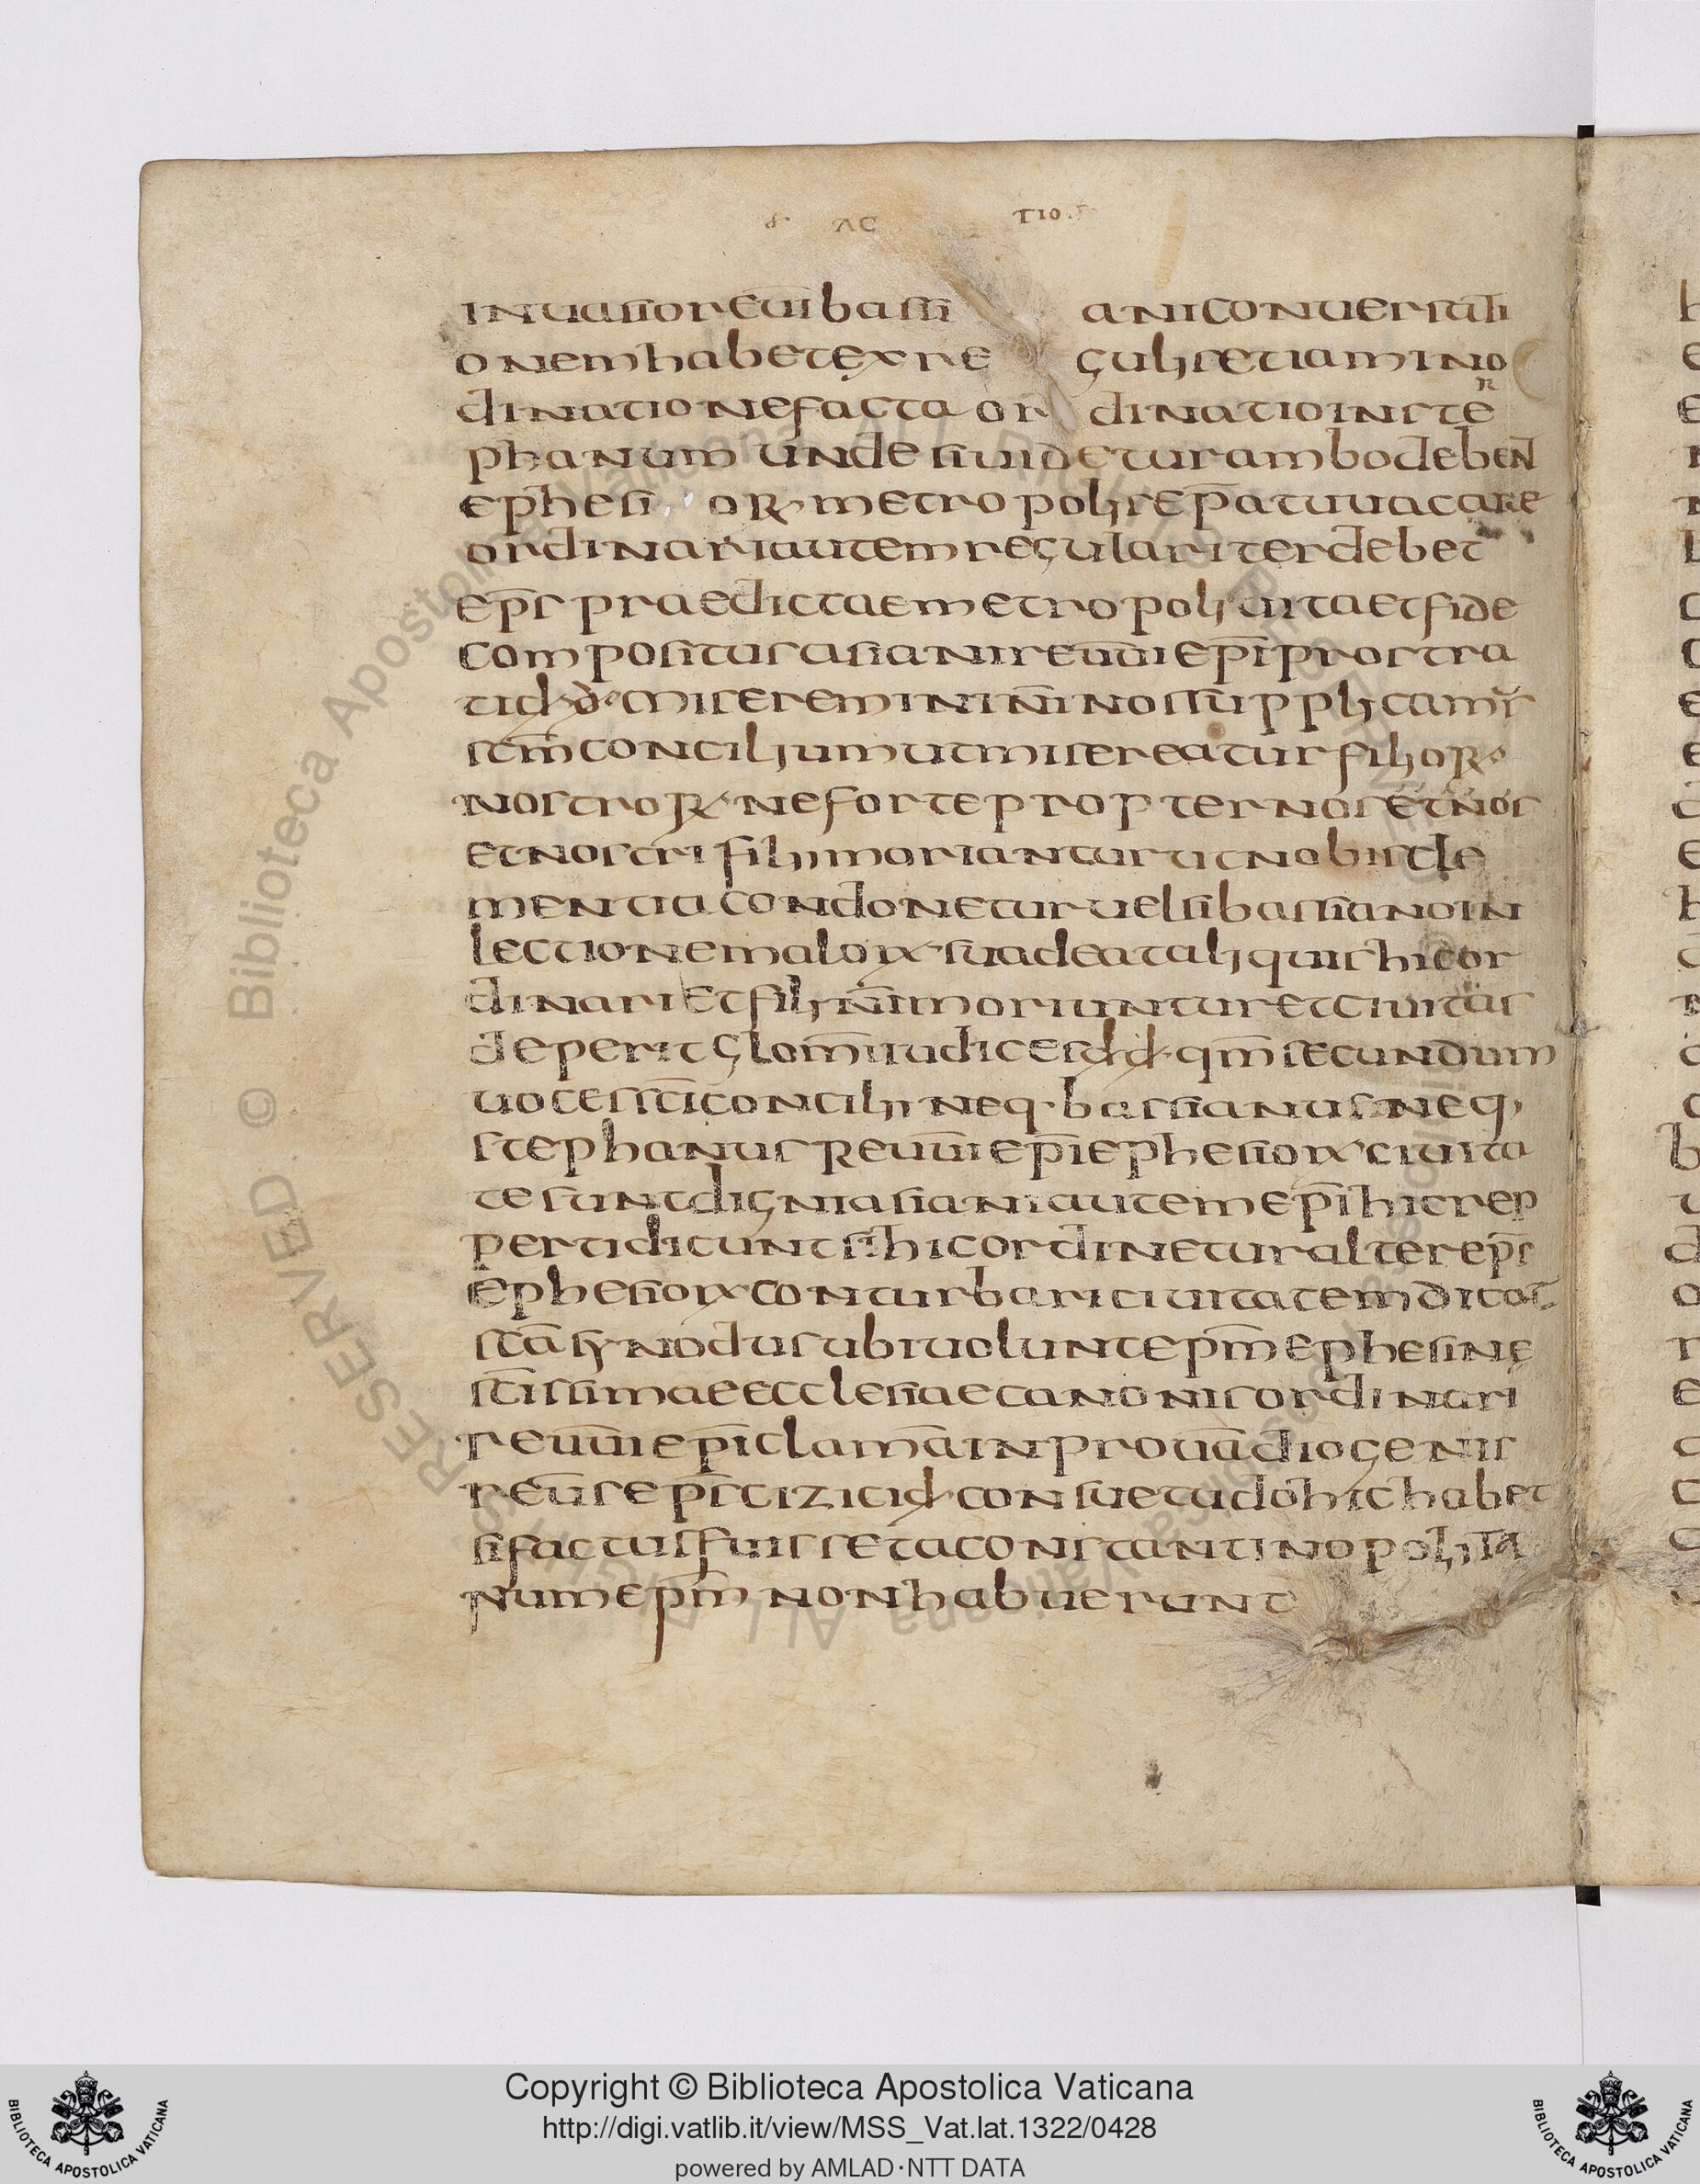 AC TIO
inuasior eum bassi ani conuersati
onem habet ex re gulis etiam in or
dinatione facta or dinatio in ste
phanum unde si uidetur ambo debent
ephesior· metropolis ep̄atu uacare
ordinari autem regulariter debet
ep̄s praedictae metropolis uita et fide
compositus asiani reuū̄i ep̄i prostra
ti d̶·d̶· miseremini n̄i nos supplicam̄s
sc̄m concilium ut misereatur filior·
nostror· ne forte propter nos et nos
et nostri filii moriantur ut nobis cle
mentia condonetur uel si bassiano in
lectione malor· suadeat aliquis hic or
dinari et filii n̄i moriuntur et ciuitas
deperit glom̄ iudices d̶d̶· qm̄ secundum
uoces sc̄i concilii neq· bassianus neq·
stephanus reuū̄i ep̄i ephesior· ciuita
te sunt digni asiani autem ep̄i hic rep
perti dicunt si hic ordinetur alter ep̄s
ephesior· conturbari ciuitatem dicat
sc̄a synodus ubi uolunt ep̄m ephesine
sc̄issimae ecclesiae canonis ordinari
reuū̄i ep̄i clamā in prouā diogenis
reū̄s ep̄s cizici d̶· consuetudo hic habet
si factus fuisset a constantinopolita
num ep̄m non habuerunt
Copyright © Biblioteca Apostolica Vaticana
http://digi.vatlib.it/view/MSS_Vat.lat.1322/0428
powered by AMLAD·NTT DATA